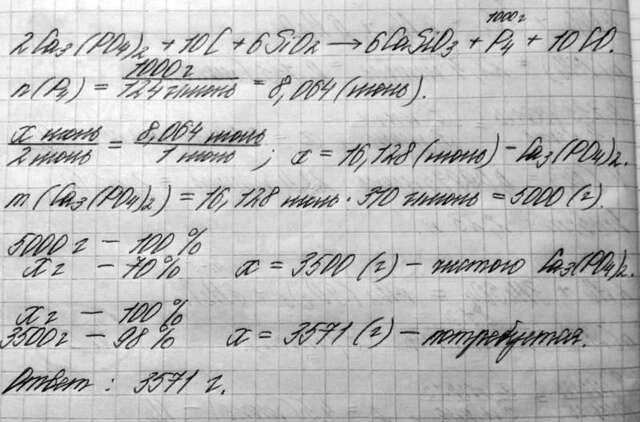 1000 г
2Ca₃(PO₄)₂ + 10C + 6SiO₂ → 6CaSiO₃ + P₄ + 10CO.
n(P₄) = 1000 г / 124 г/моль = 8,064 (моль).
x моль / 2 моль = 8,064 моль / 1 моль ; x = 16,128 (моль) – Ca₃(PO₄)₂.
m(Ca₃(PO₄)₂) = 16,128 моль · 310 г/моль = 5000 (г).
5000 г – 100 %
x г – 70 % x = 3500 (г) – чистого Ca₃(PO₄)₂.
x г – 100 %
3500 г – 98 % x = 3571 (г) – потребуется.
Ответ : 3571 г.